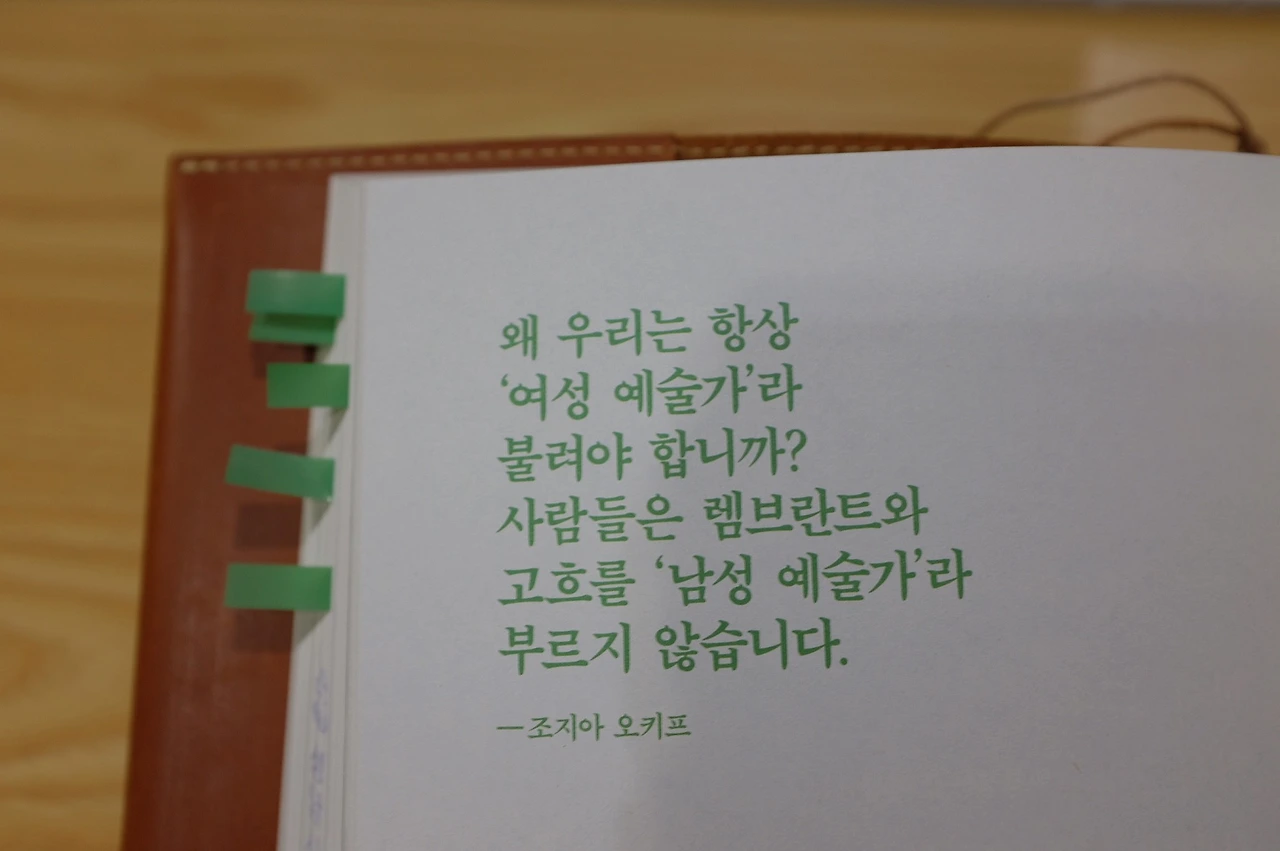 왜 우리는 항상
‘여성 예술가’라
불려야 합니까?
사람들은 렘브란트와
고흐를 ‘남성 예술가’라
부르지 않습니다.
—조지아 오키프